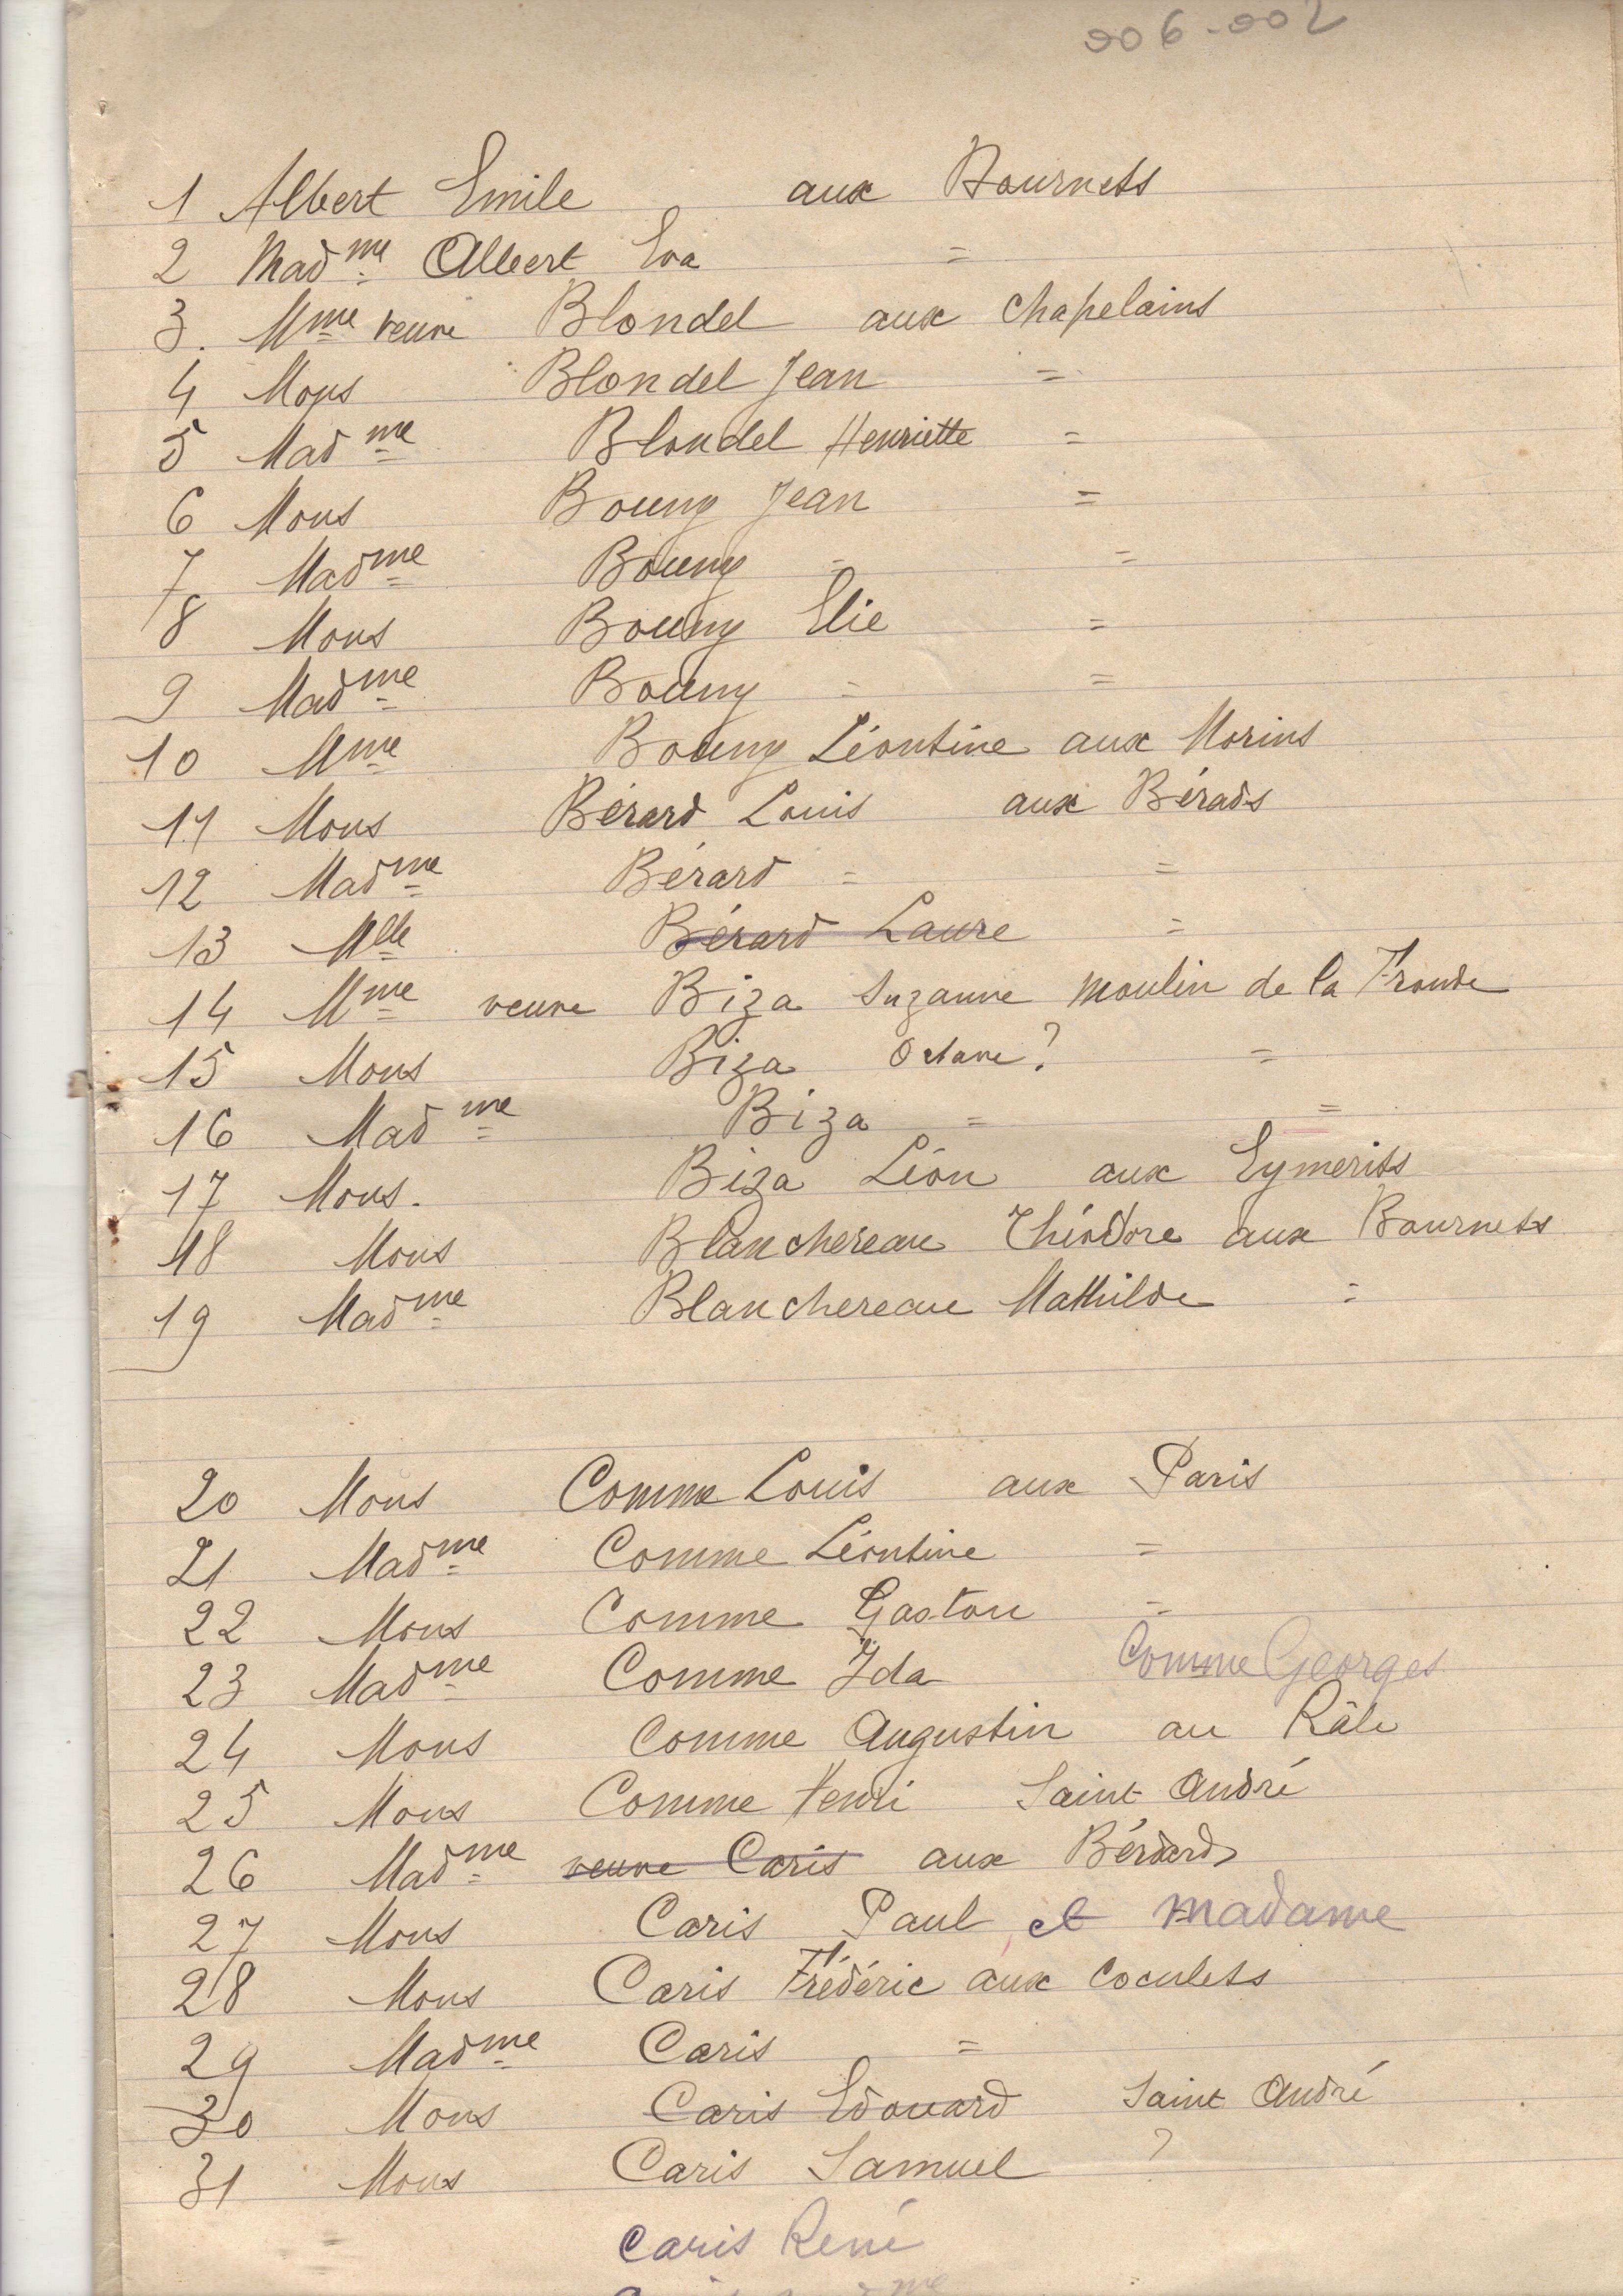 006-002
1 Albert Emile aux Bournets
2 Madme Albert Eva =
3. Mme veuve Blondel aux chapelains
4 Mons Blondel Jean =
5 Madme Blondel Henriette =
6 Mons Bouny Jean =
7 Madme Bouny = =
8 Mons Bouny Elie =
9 Madme Bouny = =
10 Mme Bouny Léontine aux Morins
11 Mons Bérard Louis aux Bérads
12 Madme Bérard = =
13 Mlle Bérard Laure =
14 Mme veuve Biza Suzanne moulin de la Fronde
15 Mons Biza Octave? =
16 Madme Biza = =
17 Mons. Biza Léon aux Eymerits
18 Mons Blanchereau Théodore aux Bournets
19 Madme Blanchereau Mathilde =
20 Mons Comme Louis aux Paris
21 Madme Comme Léontine =
22 Mons Comme Gaston =
23 Madme Comme Ida Comme Georges
24 Mons Comme Augustin au Râle
25 Mons Comme Henri Saint André
26 Madme veuve Caris aux Bérards
27 Mons Caris Paul et Madame
28 Mons Caris Frédéric aux coculets
29 Madme Caris =
30 Mons Caris Edouard Saint André
31 Mons Caris Samuel ?
Caris René